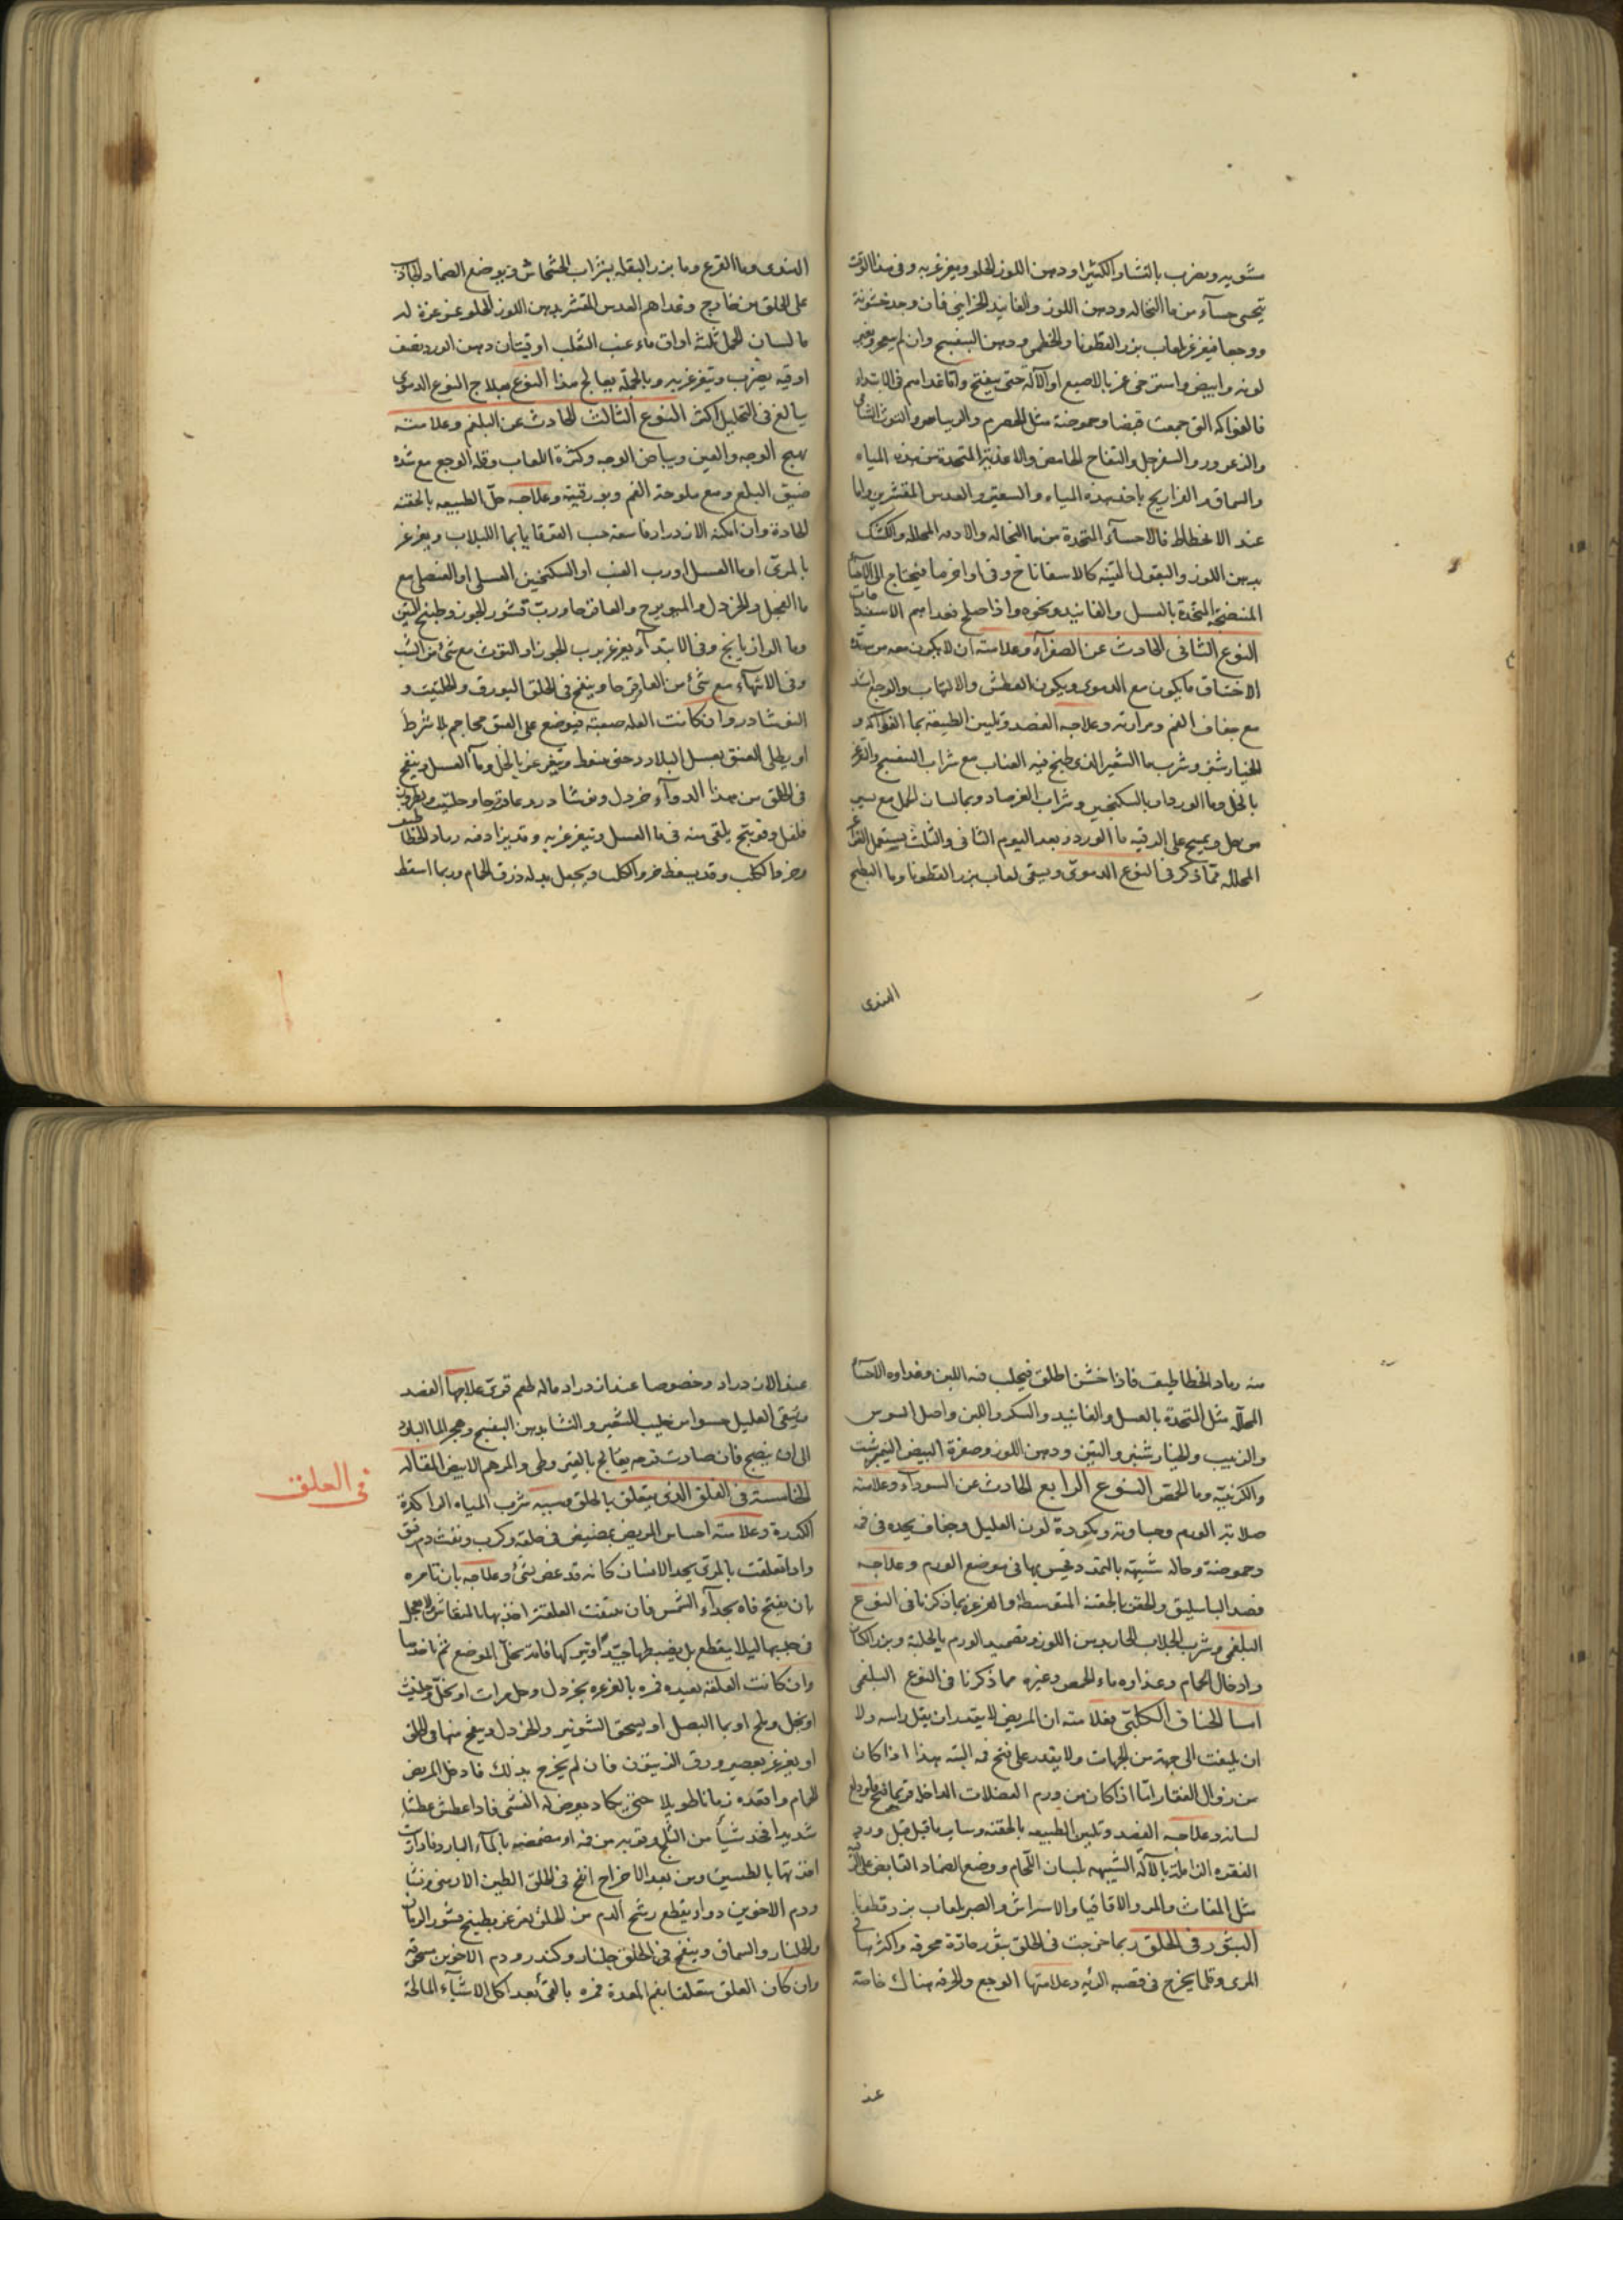 شويه ويضرب بالنشا والكثيرا ودهن اللوز الحلو ويغرغر به وفى هذا الوقت
يتحسى حساء من ماء النخاله ودهن اللوز والفانيد الخزاينى فان وجد خشونة
ووجعا فيغرغر بلعاب بزر القطونا والخطمى ودهن البنفسج وان لم ينفجر وتغير
لونه وابيض واسترخى غمز بالاصبع او الآلة حتى ينفتح واما غداهم فى الابتداء
فالفواكه التى جمعت قبضا وحموضة مثل الحصرم والريباس والتوت الشامى
والزعرور والسفرجل والتفاح الحامض والاغذية المتخذة من هذه المياه
والسماق والفراريج باحد هذه المياه والسعتر والعدس المقشر واما
عند الانحطاط فالاحساء المتخذة من ماء النخاله والادهان المحلله والكشك
بدهن اللوز والبقول اللينة كالاسفاناخ وفى اواخرها فيحتاج الى الاحساء
المنضجة المتخذة بالعسل والفانيد ونحوه واذا صلح فغداهم الاسفيدباجات
النوع الثانى الحادث عن الصفراء وعلامته ان لا يكون معه من شدة
الاختناق ما يكون مع الدموى ويكون العطش والالتهاب والوجع اشد
مع جفاف الفم ومرارته وعلاجه الفصد وتليين الطبيعة بماء الفواكه و
الخيارشنبر وشرب ماء الشعير الذى طبخ فيه العناب مع شراب البنفسج والتغرغر
بالخل وماء الورد او بالسكنجبين وشراب الفرصاد وبماء لسان الحمل مع يسير
من خل ويمسح على الرقبه ماء الورد وبعد اليوم الثانى والثالث يستعمل الغراغر
المحللة مما ذكر فى النوع الدموى ويسقى لعاب بزر القطونا وماء البطيخ
الهندى
الهندى وماء القرع وماء بزر البقله بشراب الخشخاش ويوضع الضماد الجاذب
على الحلق من خارج وغداهم العدس المقشر بدهن اللوز الحلو غرغرة له
ماء لسان الحمل ثلثة اواق ماء عنب الثعلب اوقيتان دهن الورد نصف
اوقيه يضرب ويتغرغر به وبالجملة يعالج هذا النوع بعلاج النوع الدموى
يبالغ فى التحليل اكثر النوع الثالث الحادث عن البلغم وعلامته
تهيج الوجه والعين وبياض الوجه وكثرة اللعاب وقلة الوجع مع شدة
ضيق البلع ومع ملوحة الفم وبورقيته وعلاجه حل الطبيعه بالحقنه
الحادة وان امكنه الازدراد فاسقه حب القوقايا بماء اللبلاب ويغرغر
بالمرى او ماء العسل او رب العنب او السكنجبين العسلى او العنصلى مع
ماء الفجل والخردل والميويزج والعاقرقرحا ورب قشور الجوز وطبيخ التين
وماء الرازيانج وفى الابتداء يغرغر برب الجوز او التوث مع شئ من الشب
وفى الانتهاء مع شئ من العاقرقرحا وينفخ فى الحلق البورق والحلتيت و
النوشادر وان كانت العله صعبة فيوضع على العنق محاجم بلا شرط
او يطلى العنق بعسل البلادر حتى ينفط ويتغرغر بالخل وماء العسل وينفخ
فى الحلق من هذا الدواء خردل ونوشادر وعاقرقرحا وحلتيت وبورق
فلفل وفوتنج يلقى منه فى ماء العسل ويتغرغر به وقد يزاد فيه رماد الخطاطيف
وخروء الكلب وقد يسقط خروء الكلب ويجعل بدله ذرق الحمام وربما اسقط
منه رماد الخطاطيف فاذا خشن الحلق فيحلب فيه اللبن وغداوه الاحساء
المحللة مثل المتخذة بالعسل والفانيد والسكر واللبن واصل السوس
والزبيب والخيارشنبر والتين ودهن اللوز وصفرة البيض النيمرشت
والكرنبية وماء الحمص النوع الرابع الحادث عن السوداء وعلامته
صلابة الورم وجساوته وكمودة لون العليل وجفاف يجده فى فمه
وحموضة وحاله شبيهة بالتمدد يحس بها فى موضع الورم وعلاجه
فصد الباسليق والحقن بالحقنة المتوسطة والغرغرة بما ذكرنا فى النوع
البلغمى وشرب الجلاب الحار بدهن اللوز وتضميد الورم بالحلبة وبزر الكتان
وادخال الحمام وغداوه ماء الحمص وغيره مما ذكرنا فى النوع البلغمى
اما الخناق الكلبى فعلامته ان المريض لا يقدر ان يقل راسه ولا
ان يلتفت الى جهة من الجهات ولا يقدر على فتح فمه البته هذا اذا كان
من زوال الفقار اما اذا كان من ورم العضلات الداخلة فربما فتح فاه ودلع
لسانه وعلاجه الفصد وتليين الطبيعه بالحقنه وساير ما قيل قبل ورد
الفقره الزايلة بالآلة الشبيهه بلسان اللجام ووضع الضماد القابض على الرقبة
مثل المغاث والمر والاقاقيا والاسراش والصبر بلعاب بزر قطونا
البثور فى الحلق ربما خرجت فى الحلق بثور حادة محرقه واكثرها فى
المرى وقلما يخرج فى قصبه الريه وعلامتها الوجع والحرقه هناك خاصة
عند
عند الازدراد وخصوصا عند ازدراد ماله طعم قوى علاجها الفصد
ويسقى العليل حسوا من حليب الشعير والنشا بدهن البنفسج وهجر الماء البارد
الى ان ينضج فان صارت قرحه يعالج بالقيروطى والمرهم الابيض المقالة
الخامسة فى العلق الذى يتعلق بالحلق وسببه شرب المياه الراكدة
الكدرة وعلامته احساس المريض بمضيض فى حلقه وكرب ونفث دم رقيق
واذا تعلقت بالمرى يجد الانسان كانه قد عض بشئ وعلاجه بان تامره
بان يفتح فاه بحذاء الشمس فان عينت العلقة اخذها بالمنقاش ولا يعجل
فى جذبها ليلا ينقطع بل يضبطها جيدا ويتركها فانه يتخلى الموضع ثم ياخذها
وان كانت العلقه بعيده فمره بالغرغره بخردل وخل مرات او بخل وحلتيت
او بخل وملح او بماء البصل او يسحق الشونيز والخردل وينفخ منها فى الحلق
او يغرغر بعصير ورق الزيتون فان لم يخرج بذلك فادخل المريض
الحمام واقعده زمانا طويلا حتى يكاد يعرض له الغشى فاذا عطش عطشا
شديدا فخذ شيأ من الثلج وقربه من فمه او مضمضه بالماء البارد فاذا رايت
اخذتها بالطشتين ومن بعد الاخراج انفخ فى الحلق الطين الارمنى ونشا
ودم الاخوين دواء يقطع رشح الدم من الحلق يغرغر بطبيخ قشور الرمان
والجلنار والسماق وينفخ فى الحلق جلنار وكندر ودم الاخوين مسحوقه
وان كان العلق متعلقا بفم المعدة فمره بالقئ بعد اكل الاشياء المالحة
فى العلق